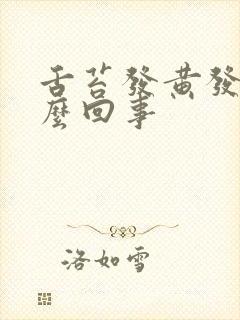 舌苔發黃發
麼回事
洛如雪